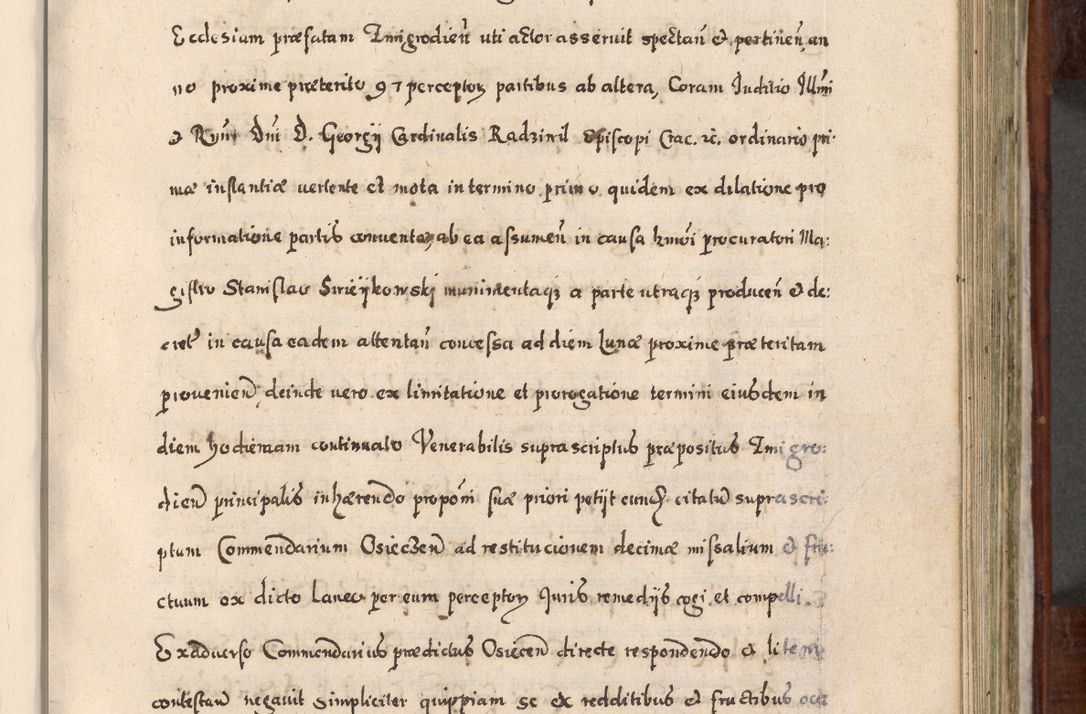 Ecclesium præfatam Zmigrodień uti actor asseruit spectań et pertineń, an
no proxime præterito 97 perceptoꝝ partibus ab altera, Coram Juditio Illmi
et Rymi Dni D. Georgij Cardinalis Radziwil Episcopi Crac. etc. ordinario pri
mæ instantiæ vertente et mota in termino primo quidem ex dilatione pro
informatione partis conventæ, ab ea assumeń in causa hmoi procuratori Ma:
gistro Stanislao Swieijkowskj munimentaqꝫ a parte utraqꝫ produceń et de:
cret in causa eadem attentań concessa ad diem Lunæ proxime præteritam
provenień, deinde vero ex limitatione et prorogatione termini eiusdem in
diem hodiernam continuato Venerabilis suprascriptus præpositus Zmigro:
dień principalis inhærendo proponi suæ priori petijt eundem citatum suprascri
ptum Commendarium Osieczeń ad restitucionem decimæ missalium et fru:
ctuum ex dicto Laneo per eum perceptoꝝ Juris remedijs cogi et compelli.
Exadverso Commendarius prædictus Osieceń directe respondendo et litem
contestań negavit simpliciter quippiam se ex redditibus et fructibus